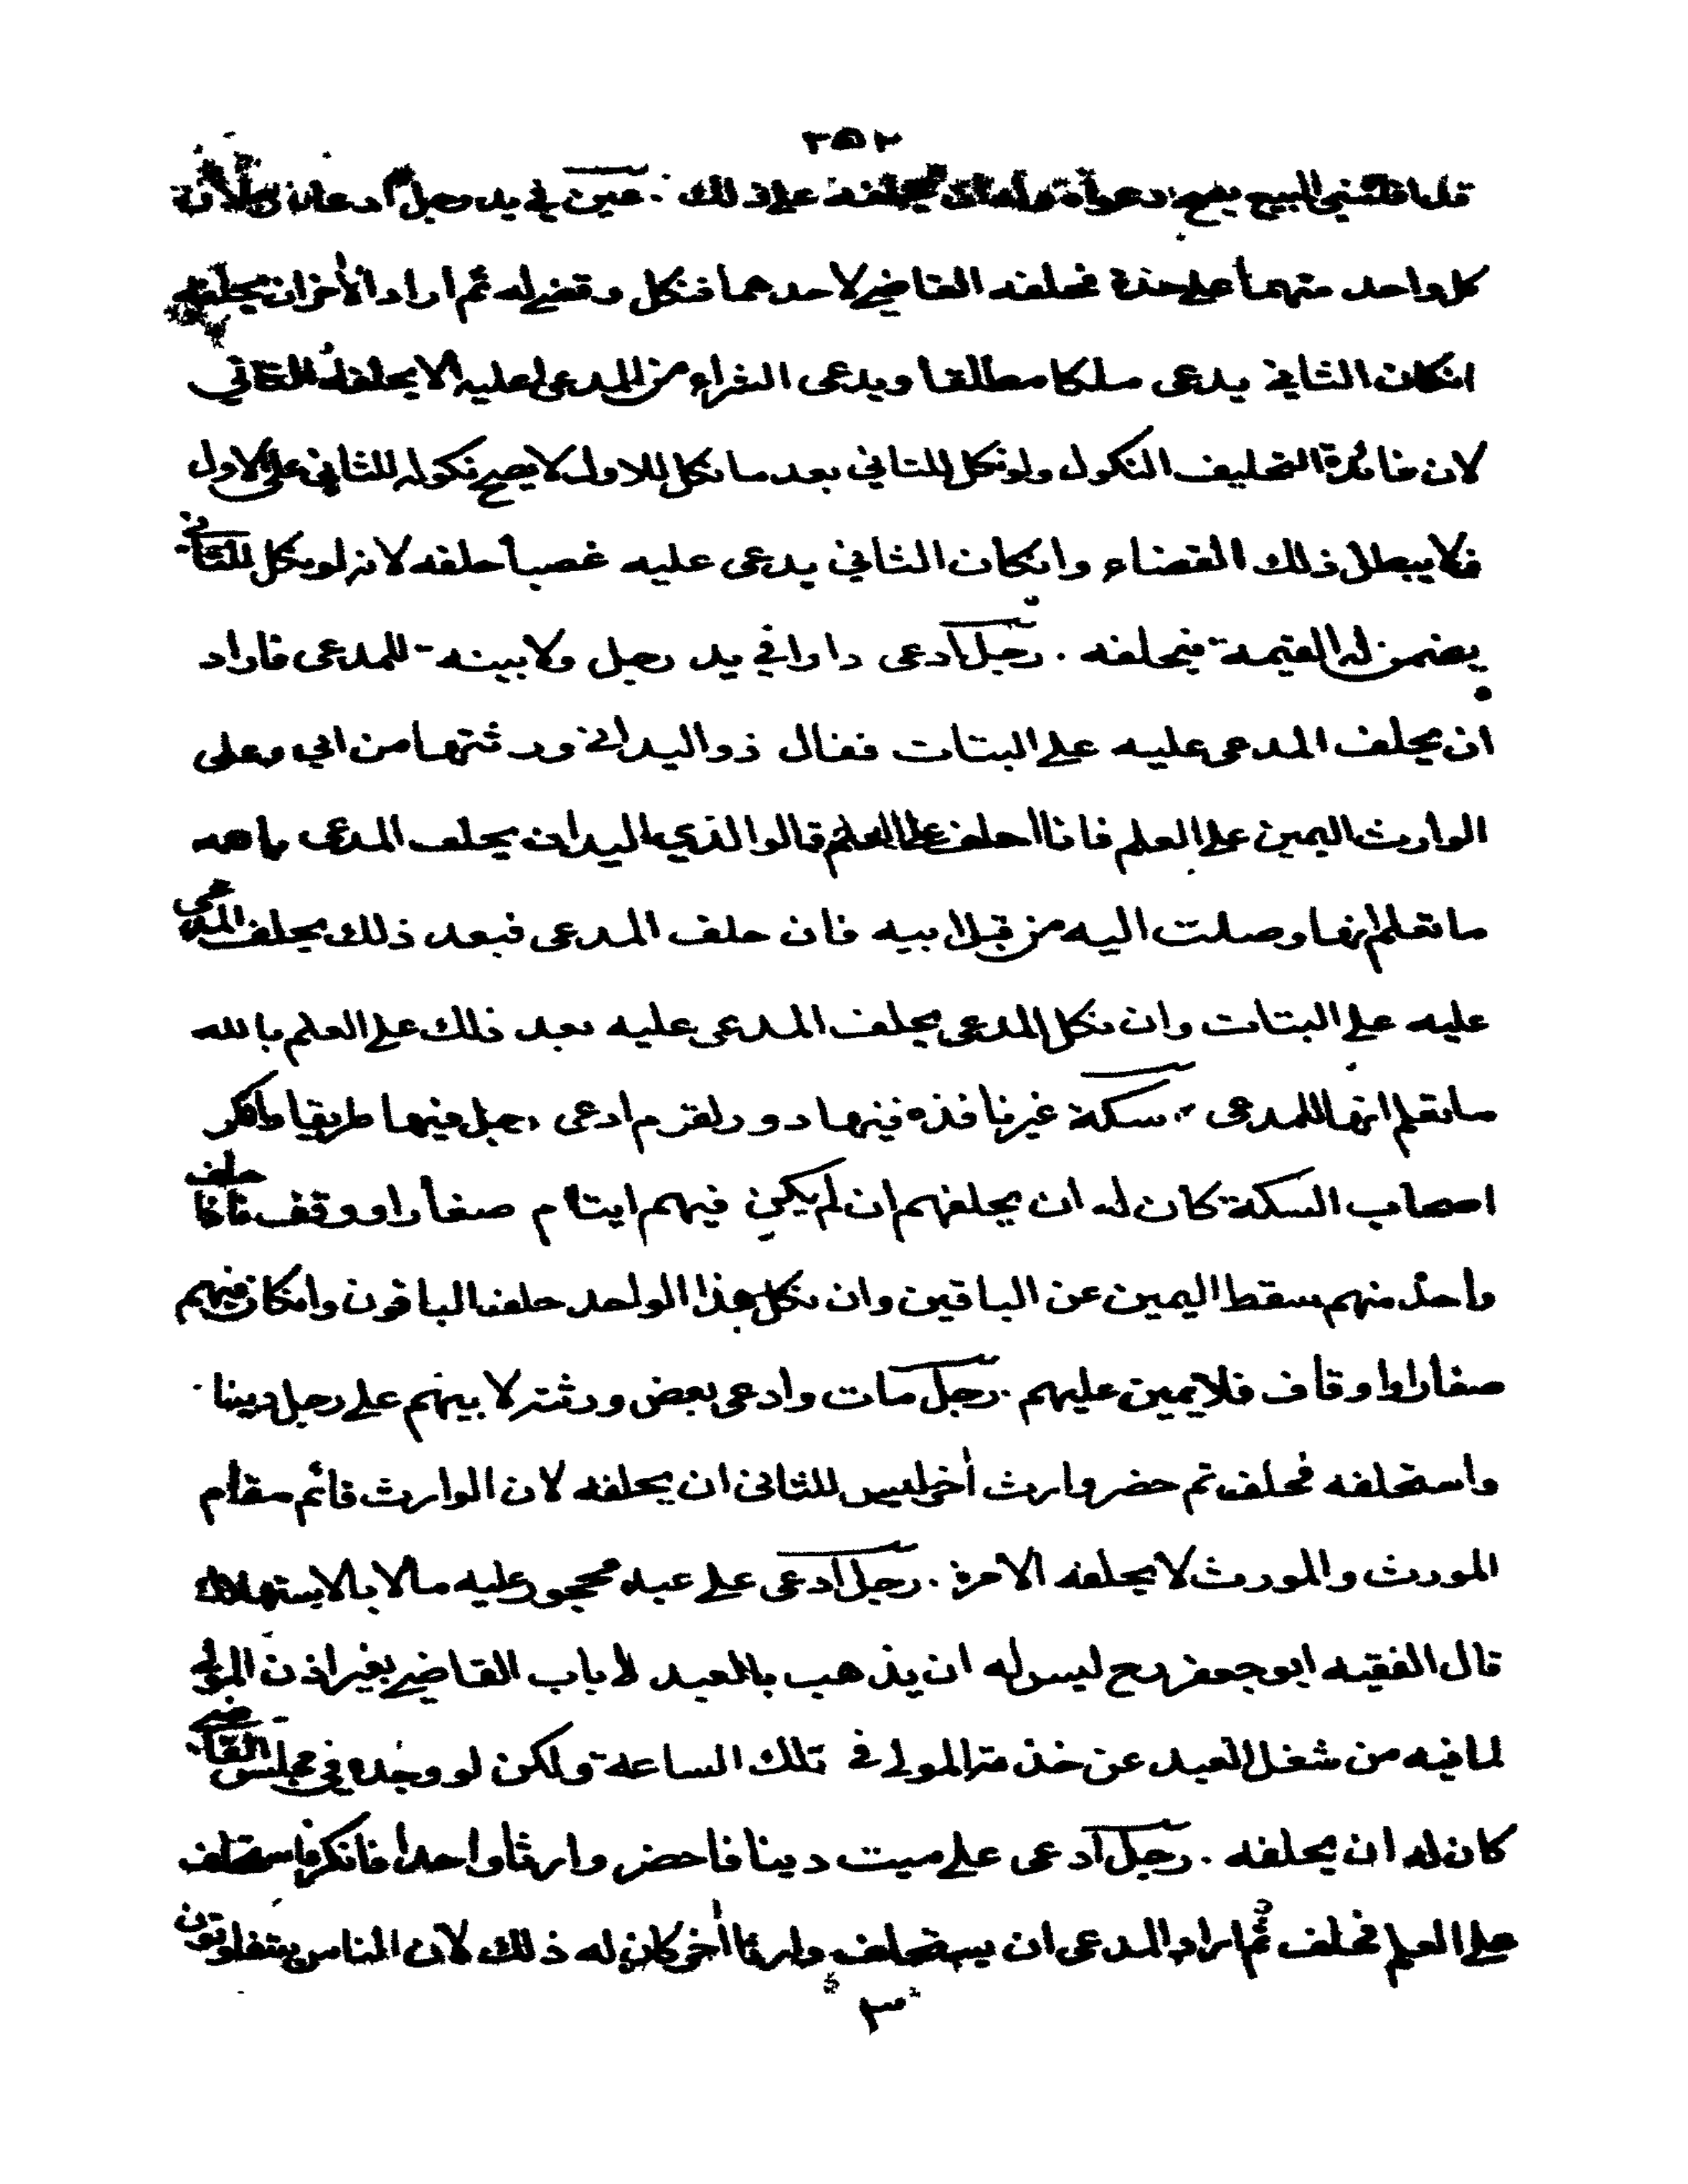 ٢٥٢
البيع يصح دعواه وله ان يحلفه على ذلك . عين في يد رجل ادعاه
كل واحد منهما على حدة فحلفه القاضي لاحدهما فنكل وقضي له ثم اراد الآخر ان يحلفه
انكان الثاني يدعى ملكا مطلقا ويدعى الشراء من المدعى عليه لا يحلفه للثاني
لان فائدة التحليف النكول ولو نكل للثاني بعد ما نكل للاول لا يصح نكوله للثاني على الاول
فلا يبطل ذلك القضاء وانكان الثاني يدعى عليه غصبا حلفه لانه لو نكل للثاني
يضمن له القيمة فيحلفه . رجل ادعى دارا في يد رجل ولا بينه للمدعى فاراد
ان يحلف المدعى عليه على البتات فقال ذو اليد اني ورثتها من ابي وعلى
الوارث اليمين على العلم فانا احلف على العلم قالوا لذي اليد ان يحلف المدعى بالله
ما تعلم انها وصلت اليه من قبل ابيه فان حلف المدعى فبعد ذلك يحلف المدعى
عليه على البتات وان نكل المدعى يحلف المدعى عليه بعد ذلك على العلم بالله
ما تعلم انها للمدعى . سكة غير نافذه فيها دور لقوم ادعى رجل فيها طريقا وانكر
اصحاب السكة كان له ان يحلفهم ان لم يكن فيهم ايتام صغار او وقف فاذا حلف
واحد منهم سقط اليمين عن الباقين وان نكل هذا الواحد حلفنا الباقون وانكان فيهم
صغار او اوقاف فلا يمين عليهم . رجل مات وادعى بعض ورثته لا بينهم على رجل دينا
واستحلفه فحلف ثم حضر وارث آخر ليس للثاني ان يحلفه لان الوارث قائم مقام
المورث والمورث لا يحلفه الا مرة . رجل ادعى على عبد محجور عليه مالا بالاستهلاك
قال الفقيه ابو جعفر رح ليس له ان يذهب بالعبد لا باب القاضي بغير اذن المولى
لما فيه من شغل العبد عن خدمة المولى في تلك الساعة ولكن لو وجده في مجلس القاضي
كان له ان يحلفه . رجل ادعى على ميت دينا فاحضر وارثا واحدا فانكر فاستحلف
على العلم فحلف ثم اراد المدعى ان يستحلف وارثا آخر كان له ذلك لان الناس يتفاوتون